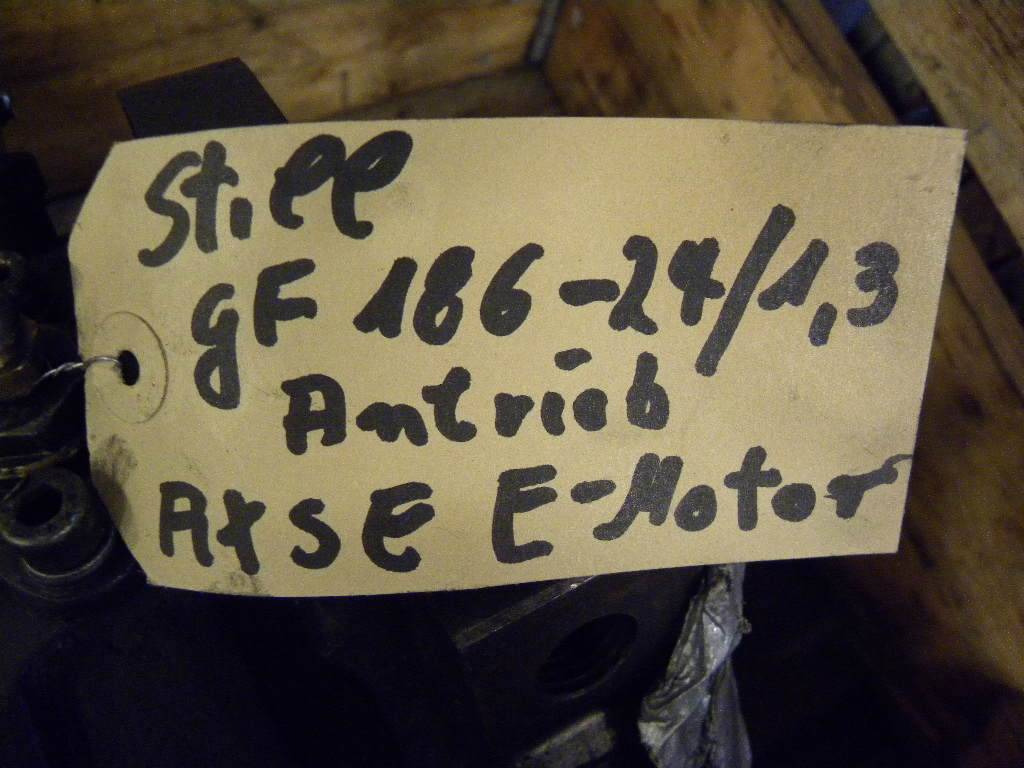 Still
GF 186-24/1,3
Antrieb
AXSE E-Motor